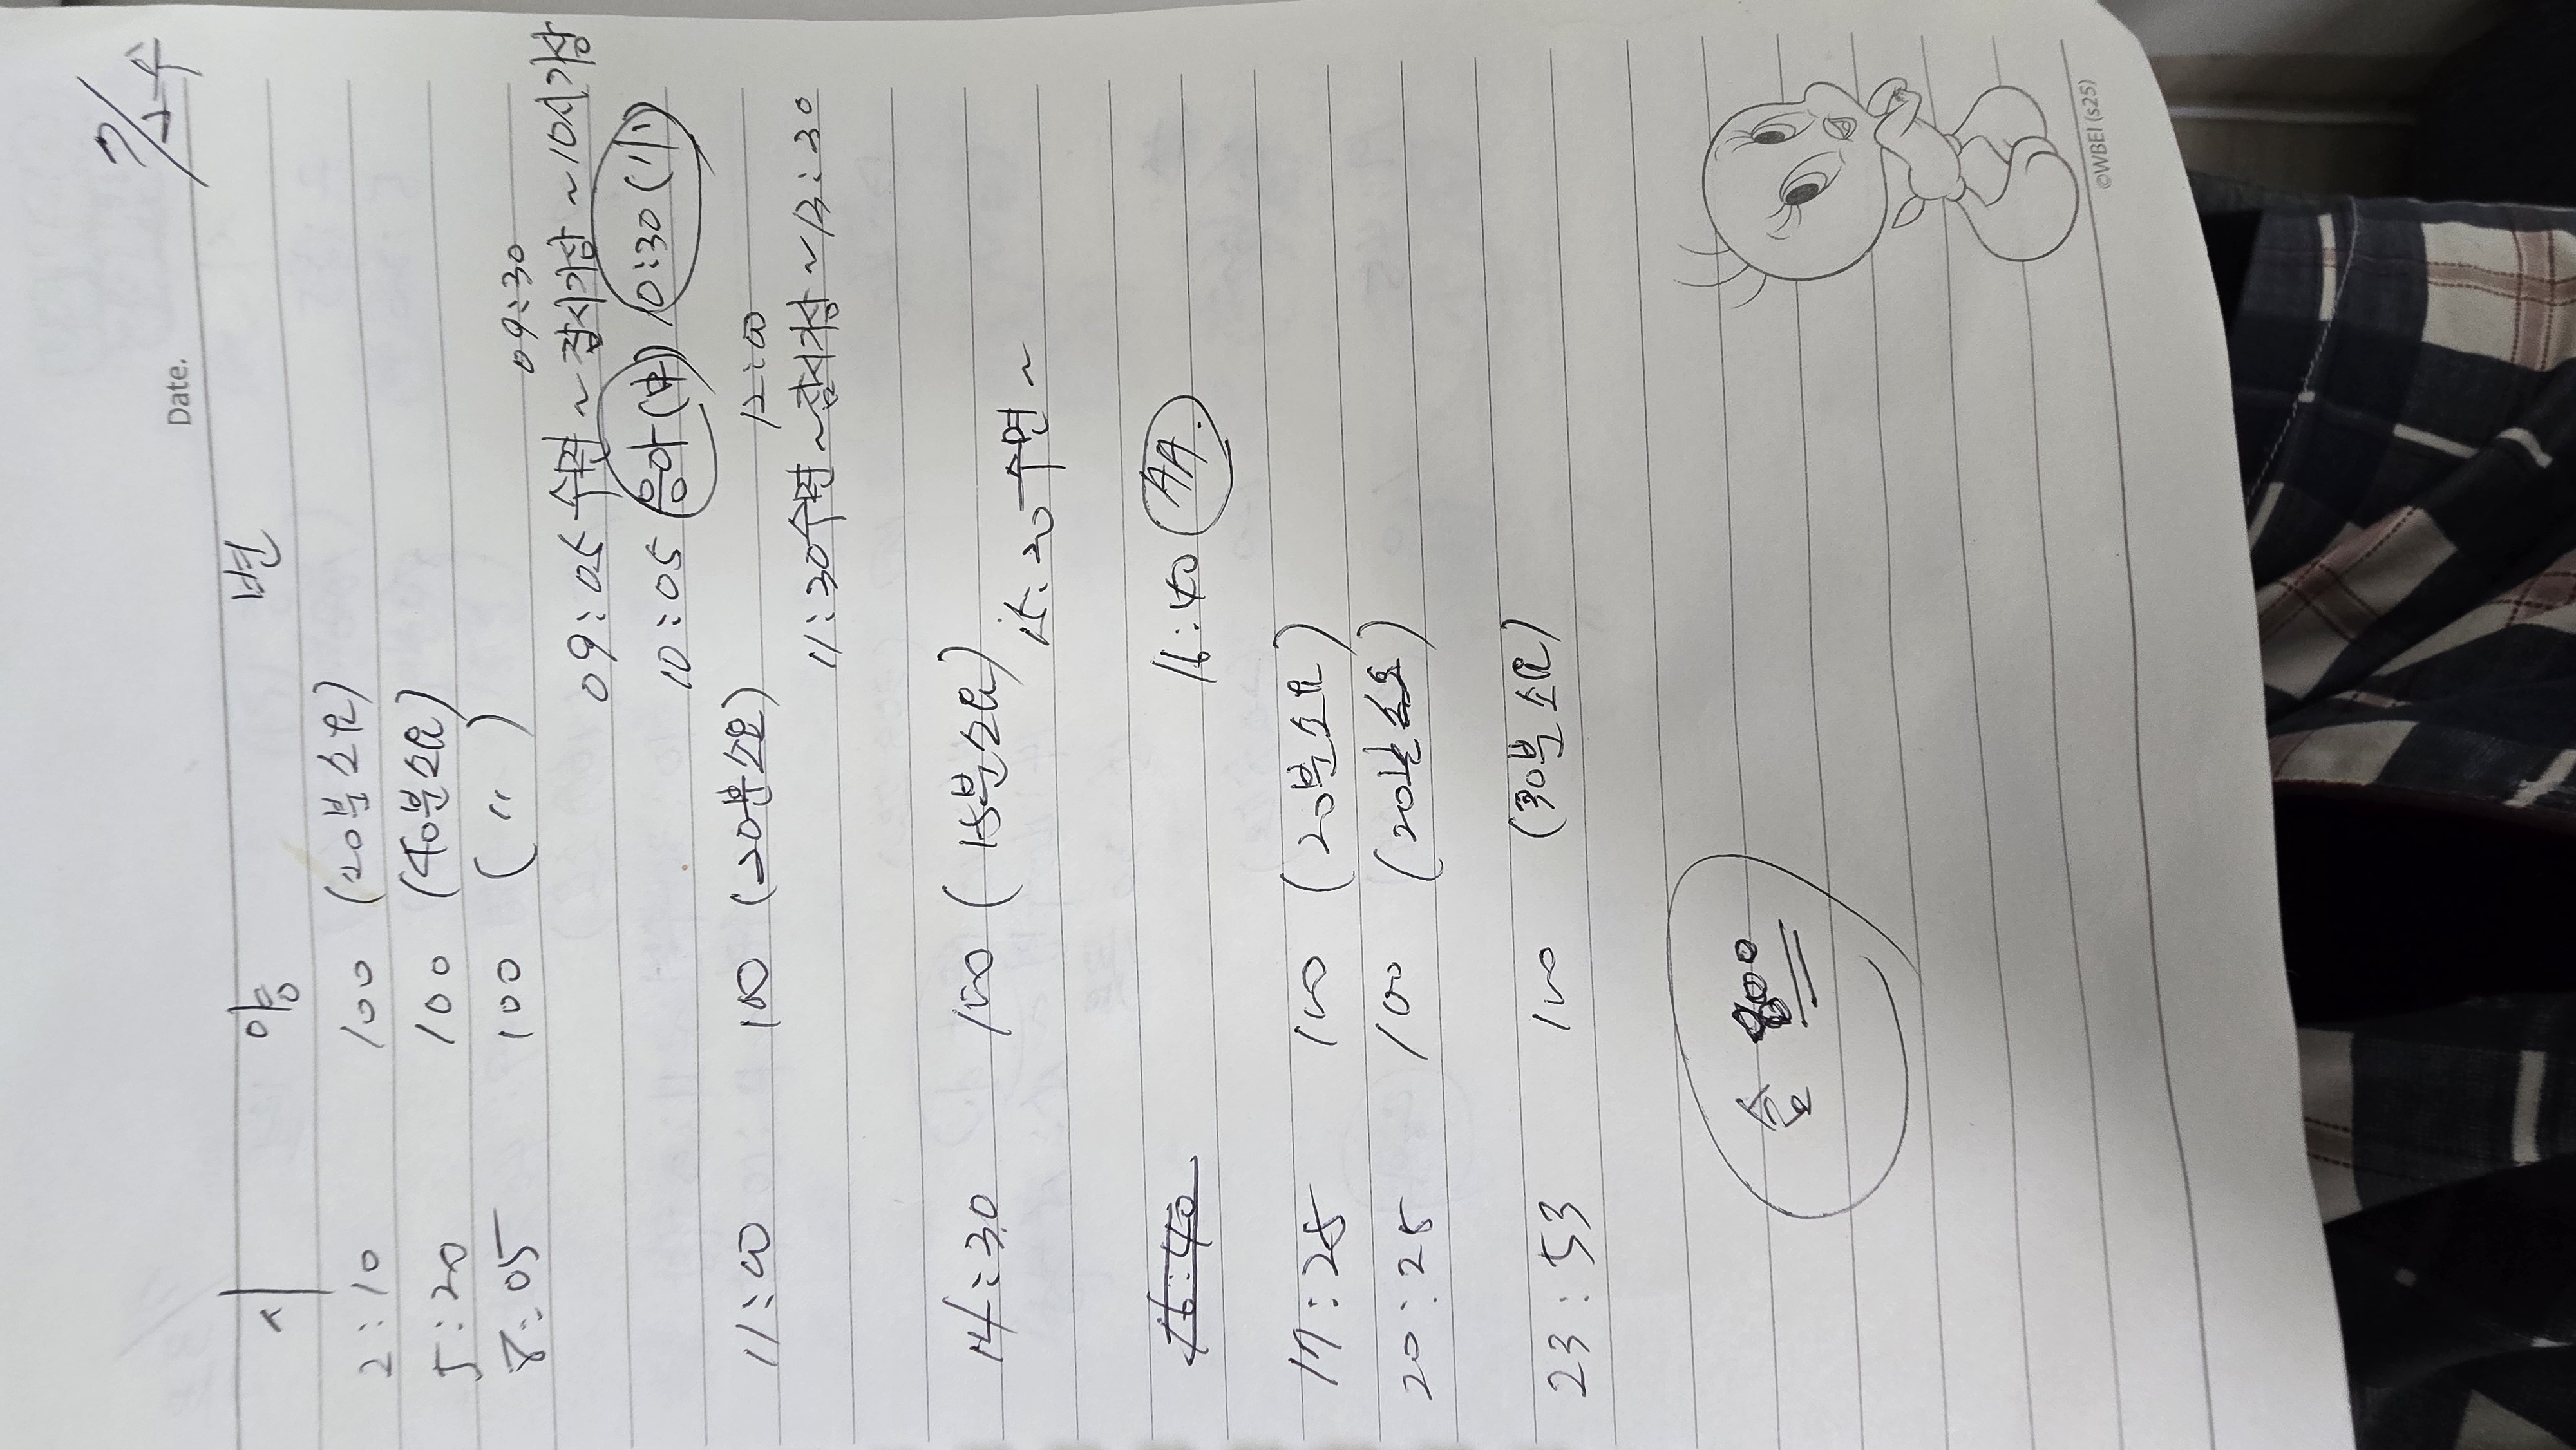 Date.
시 양 변
2:10 100 (20분 소요)
5:20 100 (40분소요)
8:05 100 ( " )
09:30
09:05 수면 ~ 잠시기상 ~10시기상
10:05 응아(中) 10:30 (小)
12:00
11:00 100 (20분소요)
11:30수면 ~잠시기상 ~13:30
14:30 100 (15분소요)
15:20 수면 ~
16:40 16:40 AA.
17:25 100 (20분소요)
20:25 100 (20분소요)
23:53 100 (30분소요)
총 800
©WBEI (s25)